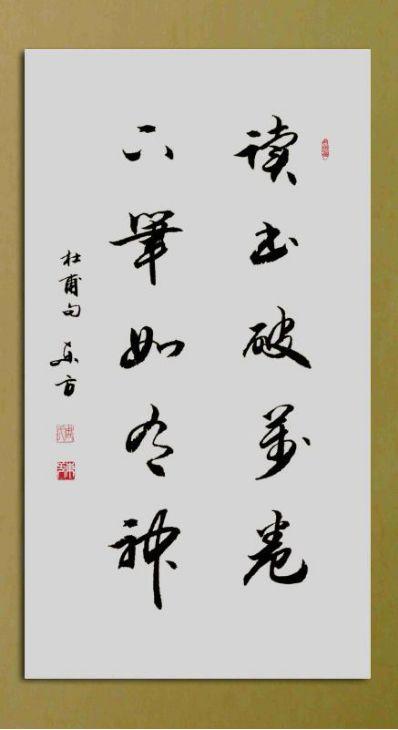 读书破萬卷
下筆如有神
杜甫句 东方